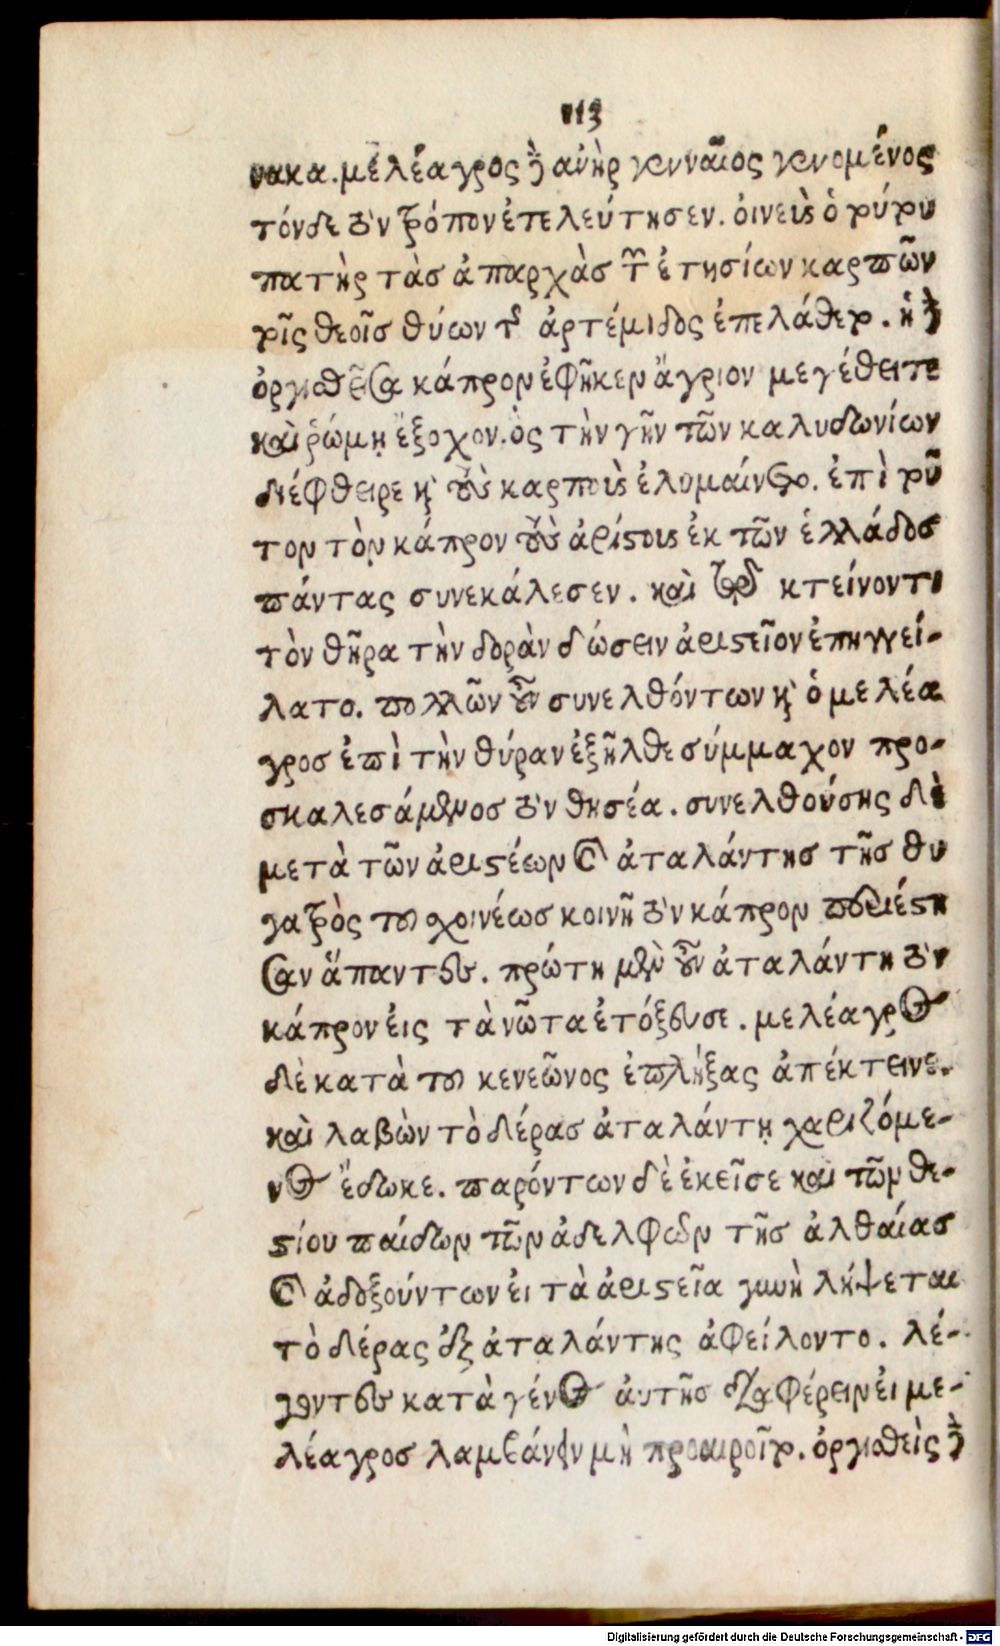 113
νακα. μελέαγρος δὲ ἀνὴρ γενναῖος γενομένος
τόνδε τὸν τρόπον ἐτελεύτησεν. ὀινεὺς ὁ τύτυ
πατὴρ τὰσ ἀπαρχὰσ τῶν ἐτησίων καρπῶν
τῖς θεοῖσ θύων τῆς ἀρτέμιδος ἐπελάθετο. ἡ δὲ
ὀργισθεῖσα κάπρον ἐφῆκεν ἄγριον μεγέθει τε
καὶ ῥώμῃ ἔξοχον. ὃς τὴν γῆν τῶν καλυδωνίων
διέφθειρε καὶ τοὺς καρποὺς ἐλυμαίνετο. ἐπὶ τῦ
τον τὸν κάπρον τοὺς ἀρίστους ἐκ τῶν ἑλλάδοσ
πάντας συνεκάλεσεν. καὶ τῷ κτείνοντι
τὸν θῆρα τὴν δορὰν δώσειν ἀριστεῖον ἐπηγγεί-
λατο. πολλῶν οὖν συνελθόντων καὶ ὁ μελέα
γροσ ἐπὶ τὴν θύραν ἐξῆλθε σύμμαχον προ-
σκαλεσάμενος τὸν θησέα. συνελθούσης δὲ
μετὰ τῶν ἀριστέων καὶ ἀταλάντησ τῆσ θυ
γατρὸς τοῦ σχοινέωσ κοινῇ τὸν κάπρον περιέστη
σαν ἅπαντες. πρώτη μὲν οὖν ἀταλάντη τὸν
κάπρον ἐις τὰ νῶτα ἐτόξευσε. μελέαγρος
δὲ κατὰ τοῦ κενεῶνος ἐπλήξας ἀπέκτεινε.
καὶ λαβὼν τὸ δέρασ ἀταλάντῃ χαριζόμε-
νος ἔδωκε. παρόντων δὲ ἐκεῖσε καὶ τῶν θε-
στίου παίδων τῶν ἀδελφῶν τῆσ ἀλθαίασ
καὶ ἀδοξούντων ἐι τὰ ἀριστεῖα γυνὴ λήψεται
τὸ δέρας ἐξ ἀταλάντης ἀφείλοντο. λέ-
γοντες κατὰ γένος ἀυτῆσ διαφέρειν ἐι με-
λέαγροσ λαμβάνειν μὴ προαιροῖτο. ὀργισθεὶς δὲ
Digitalisierung gefördert durch die Deutsche Forschungsgemeinschaft - DFG